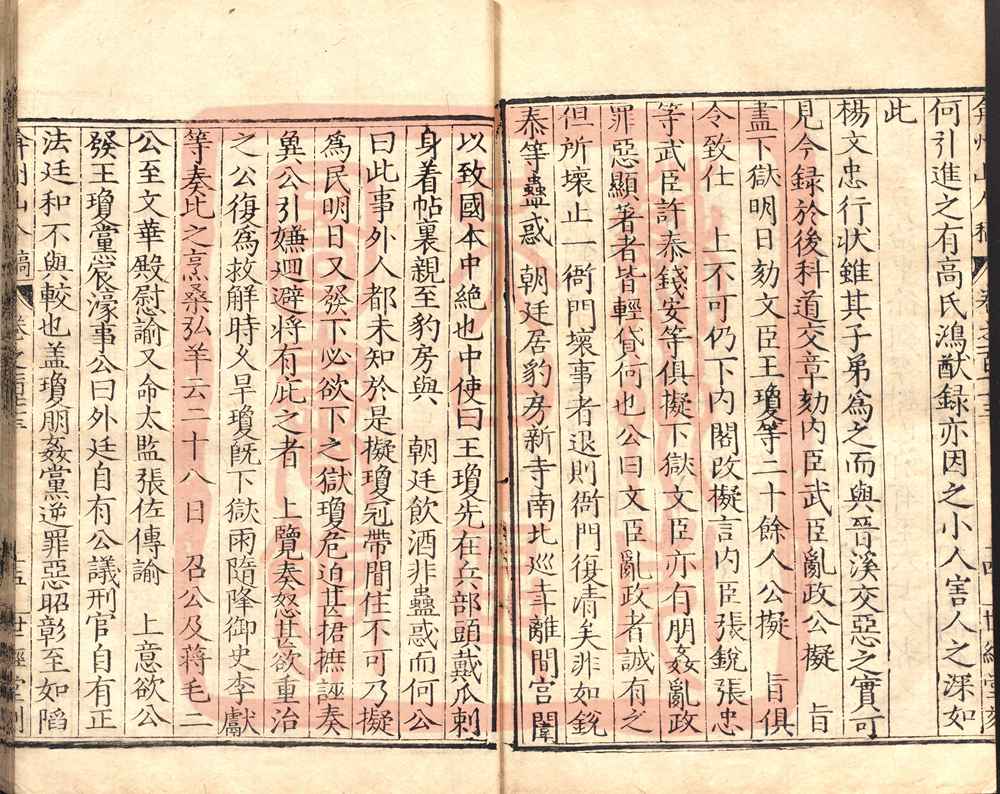 何引進之有高氏鴻猷録亦因之小人害人之深如
此
楊文忠行状雖其子弟爲之而與晉溪交惡之實可
見今録於後科道交章劾内臣武臣亂政公擬 旨
盡下獄明日劾文臣王瓊等二十餘人公擬 旨俱
令致仕 上不可仍下内閣改擬言内臣張銳張忠
等武臣許泰錢安等俱擬下獄文臣亦有朋姦亂政
罪惡顯著者皆輕貸何也公曰文臣亂政者誠有之
但所壞止一衙門壞事者退則衙門復清矣非如銳
泰等蠱惑 朝廷居豹房新寺南北巡幸離間宮闈
以致國本中絶也中使曰王瓊先在兵部頭戴瓜刺
身着帖裏親至豹房與 朝廷飲酒非蠱惑而何公
曰此事外人都未知於是擬瓊冠帶閒住不可乃擬
爲民明日又發下必欲下之獄瓊危迫甚捃摭誣奏
兾公引嫌迴避將有庇之者 上覽奏怒甚欲重治
之公復爲救解時久旱瓊旣下獄雨隨降御史李獻
等奏比之烹桑弘羊云二十八日 召公及蔣毛二
公至文華殿慰諭又命太監張佐傳諭 上意欲公
發王瓊黨宸濠事公曰外廷自有公議刑官自有正
法廷和不與較也盖瓊朋姦黨逆罪惡昭彰至如謟